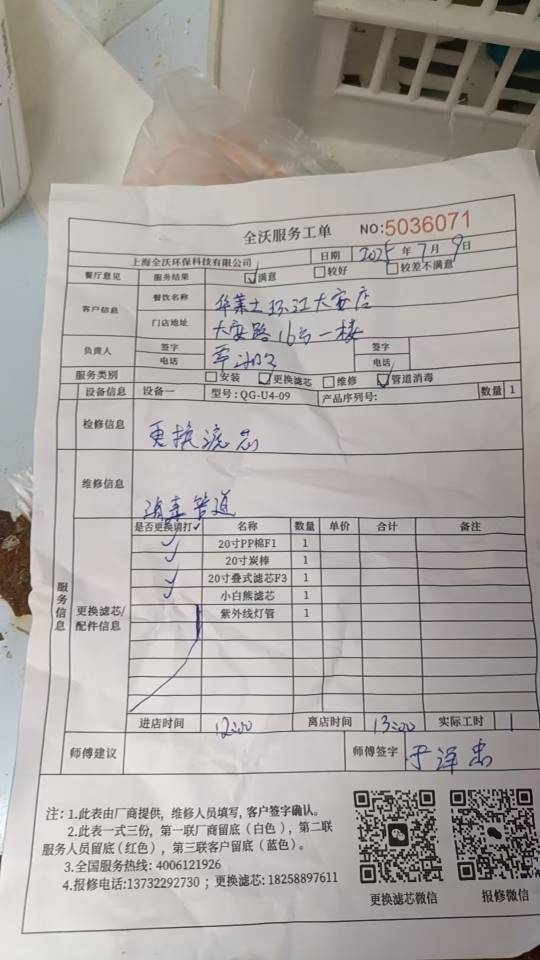 全沃服务工单 NO:5036071
上海全沃环保科技有限公司 日期 2025 年 7 月 9 日
餐厅意见 服务结果 ☑满意 □较好 □较差不满意
客户信息 餐饮名称 华莱士 大安店
门店地址 大安路16号一楼
负责人 签字 签字
电话 电话
服务类别 □安装 ☑更换滤芯 □维修 ☑管道消毒
设备信息 设备一 型号: QG-U4-09 产品序列号: 数量 1
检修信息 更换滤芯
维修信息 消毒管道
服务信息 更换滤芯/配件信息
是否更换请打✓ 名称 数量 单价 合计 备注
✓ 20寸PP棉F1 1
✓ 20寸炭棒 1
✓ 20寸叠式滤芯F3 1
✓ 小白熊滤芯 1
紫外线灯管 1
进店时间 12:00 离店时间 13:00 实际工时 1
师傅建议 师傅签字 于泽忠
注: 1.此表由厂商提供, 维修人员填写, 客户签字确认。
2.此表一式三份, 第一联厂商留底 (白色), 第二联
服务人员留底(红色), 第三联客户留底 (蓝色)。
3.全国服务热线: 4006121926
4.报修电话:13732292730 ; 更换滤芯: 18258897611
更换滤芯微信 报修微信